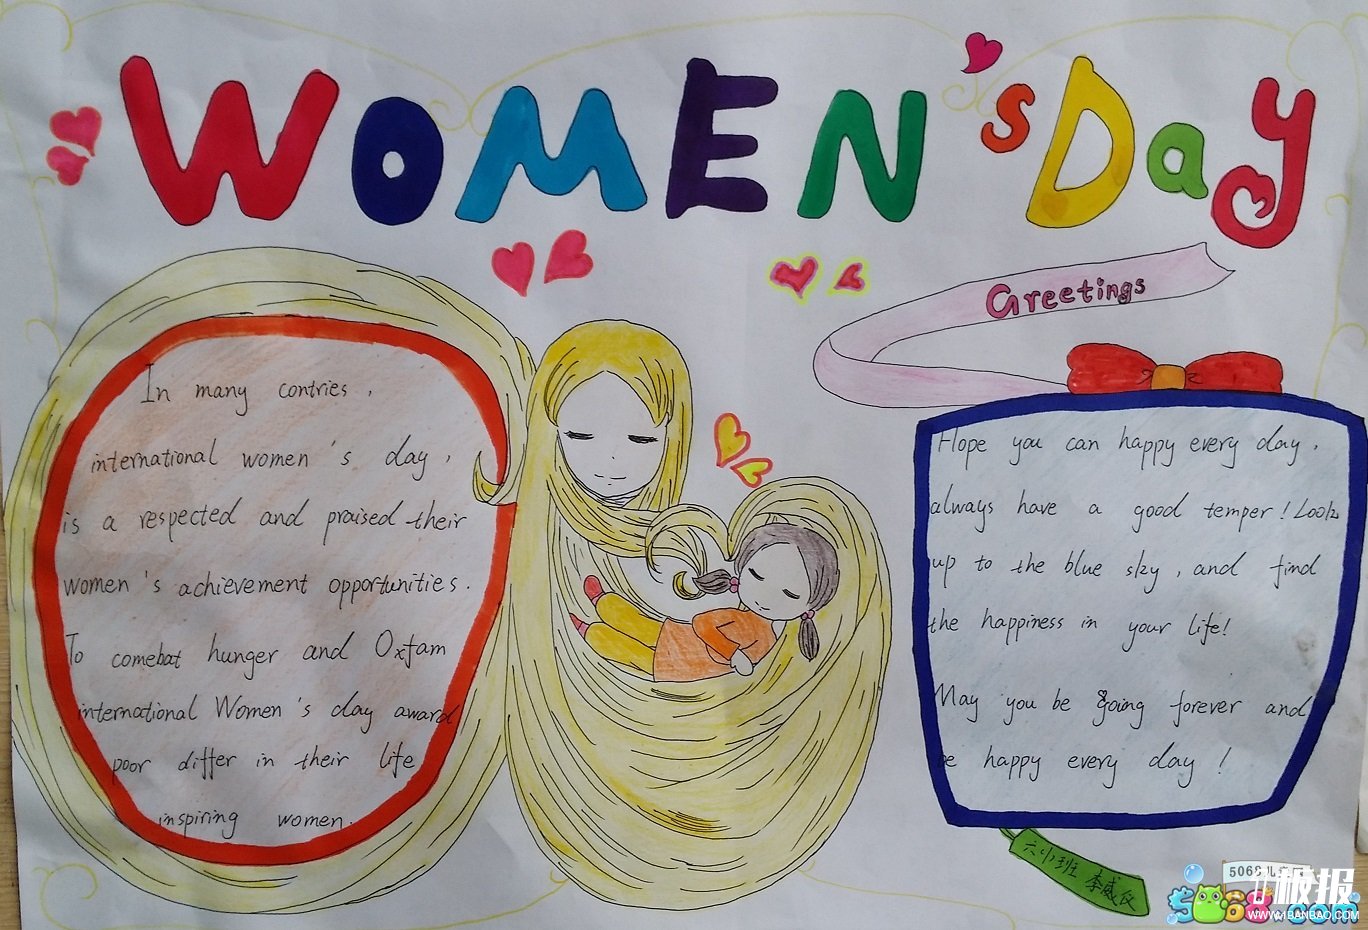 WOMEN'S Day
Greetings
In many contries,
international women's day,
is a respected and praised their
women's achievement opportunities.
To comebat hunger and Oxfam
international Women's day award
poor differ in their life
inspiring women.
Hope you can happy every day,
always have a good temper! Look
up to the blue sky, and find
the happiness in your life!
May you be going forever and
be happy every day!
班 李威仪
5068儿
板报
5068.com
WWW.1BANBAO.COM